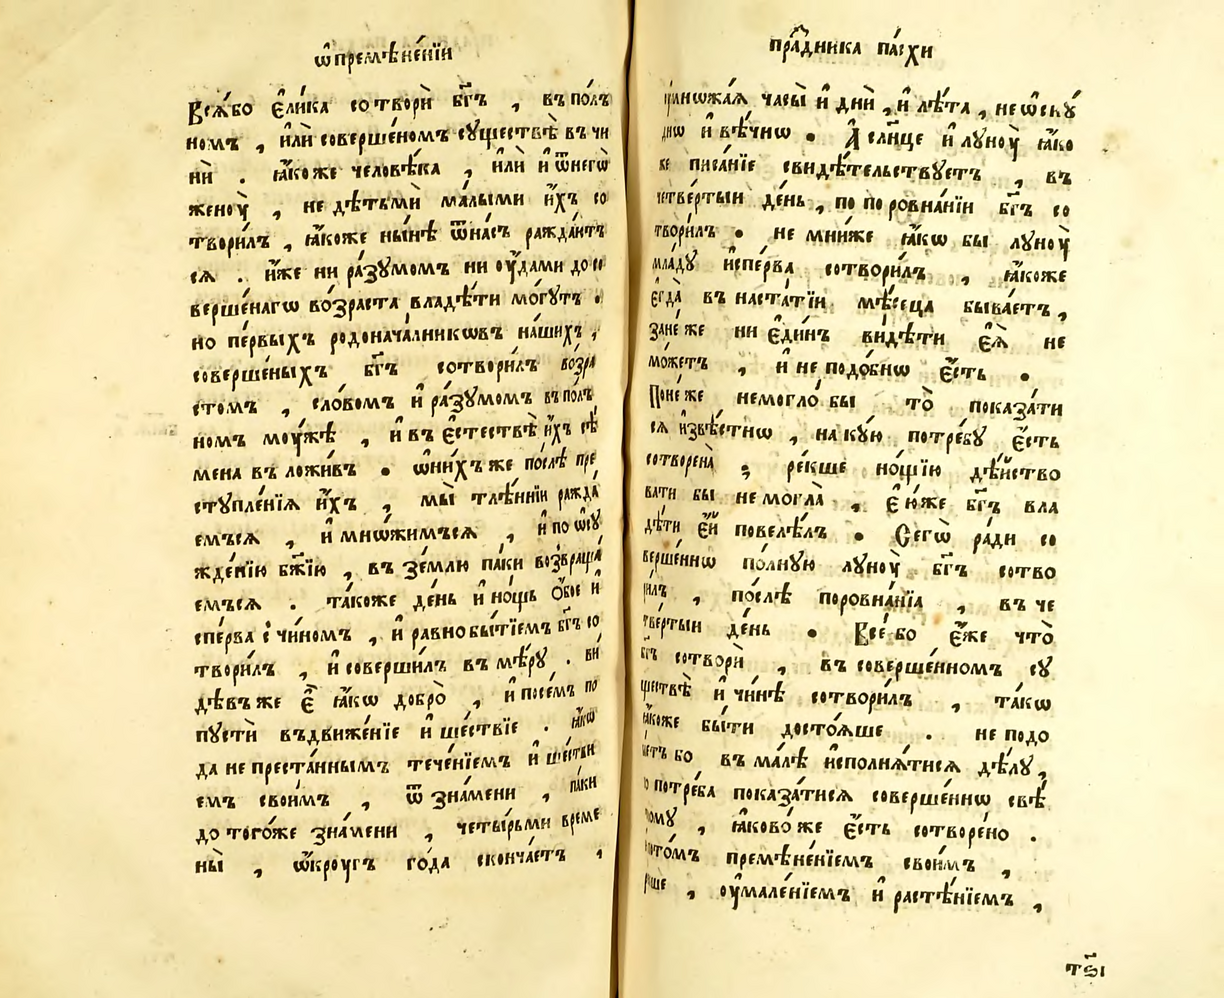 ѡ҆премѣне́нїи
Всѧ́бо є҆ли́ка сотворѝ бг҃ъ , въпо́лъ
номъ , и҆лѝ соверше́номъ существѣ̀ въчи
нѝ . ꙗ҆́коже человѣ́ка , и҆лѝ и҆ ѿнегѡ̀
женоу̀ , не дѣтьмѝ ма́лыми и҆́хъ со
твори́лъ , ꙗ҆́коже ны́нѣ ѿна́съ ражда́итъ
сѧ . и҆́же ни ра́зумомъ ни оу҆́дами досо
верше́нагѡ во́зраста владѣ́ти мо́гутъ .
но пе́рвыхъ родонача́лникѡвъ на́шихъ ,
соверше́ныхъ бг҃ъ сотвори́лъ во́зра
стомъ , сло́вомъ и҆ ра́зумомъ въпо́лъ
номъ моу́жѣ , и҆ въ є҆стествѣ̀ и҆́хъ сѣ́
мена въ ложи́въ . ѡ҆ни́хъже по́слѣ пре
ступле́нїѧ и҆́хъ , мы̀ тлѣ́ннїи ражда́
емъсѧ , и҆ мно́жимъсѧ , и҆ по ѡ҆су
жде́нїю бж҃їю , въ зе́млю па́ки возвраща́
емъсѧ . та́коже де́нь и҆ но́щь ѻ҆бо́е и҆
спе́рва с̾ чи́номъ , и҆ равнобы́тїемъ бг҃ъ со
твори́лъ , и҆ соверши́лъ въ мѣ́ру . ви́
дѣвъже є҆̀ ꙗ҆́кѡ добро̀ , и҆ посе́мъ по
пустѝ въдвиже́нїе и҆ ше́ствїе . ꙗ҆́кѡ
да не преста́ннымъ тече́нїемъ и҆ ше́стви
емъ свои́мъ , ѿ зна́мени , па́ки
до того́же зна́мени , четы́рьми време
ны̀ , ѡ҆́кроугъ го́да сконча́етъ ,
пра́здника па́схи
часы̀ и҆ днѝ , и҆ лѣ́та , не ѡ҆ску́
днѡ и҆ вѣ́чнѡ . А҆ слн҃це и҆ луноу̀ ꙗ҆́ко
же писа́нїе свидѣ́тельствуетъ , въ
четве́ртыи де́нь , по поровна́нїи бг҃ъ со
твори́лъ . не мни́же ꙗ҆́кѡ бы луноу̀
мла́ду и҆спе́рва сотвори́лъ , ꙗ҆́коже
є҆гда̀ въ наста́тїи мѣ́сеца быва́етъ ,
зане́же ни є҆ди́нъ ви́дѣти є҆ѧ̀ не
мо́жетъ , и҆ не подо́бнѡ є҆́сть .
Поне́же немогло́ бы то̀ показа́ти
сѧ и҆звѣ́стнѡ , на кую̀ потре́бу є҆́сть
сотворена̀ ; ре́кше но́щїю дѣ́йство
вати бы не могла̀ , є҆ю́же бг҃ъ вла
дѣ́ти є҆́й повелѣ́лъ . Сегѡ̀ ра́ди со
верше́ннѡ по́лную луноу̀ бг҃ъ сотво
ри́лъ , по́слѣ поровна́нїѧ , въ че
тве́ртыи де́нь . Все́ бо є҆́же что̀
бг҃ъ сотворѝ , въ соверше́нномъ су
ществѣ̀ и҆ чи́нѣ сотвори́лъ , та́кѡ
ꙗ҆́коже бы́ти досто́ѧше . не подо
ба́етъ бо въ ма́лѣ и҆сполнѧ́тисѧ дѣ́лу ,
но потре́ба показа́тисѧ соверше́ннѡ свѣ́
тлому , ꙗ҆ково́ же є҆́сть сотворе́но .
премѣне́нїемъ свои́мъ ,
ре́кше , оу҆мале́нїемъ и҆ расте́нїемъ ,
тѕ҃і